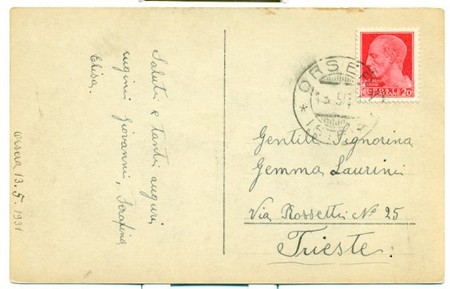 Saluti e tanti auguri
cugini Giovanni, Serafina
Elisa.
Orsera 13.5.1931
ORSE
13.5
20
Gentile Signorina
Gemma Laurini
Via Rossetti No 25
Trieste.